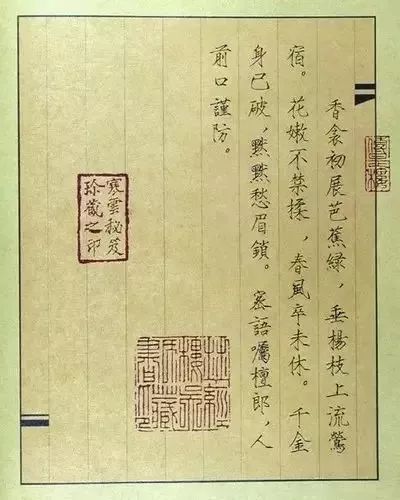 香衾初展芭蕉綠，垂楊枝上流鶯
宿。花嫩不禁揉，春風卒未休。千金
身已破，默默愁眉鎖。密語囑檀郎，人
前口謹防。
寒雲秘笈
珍藏之印